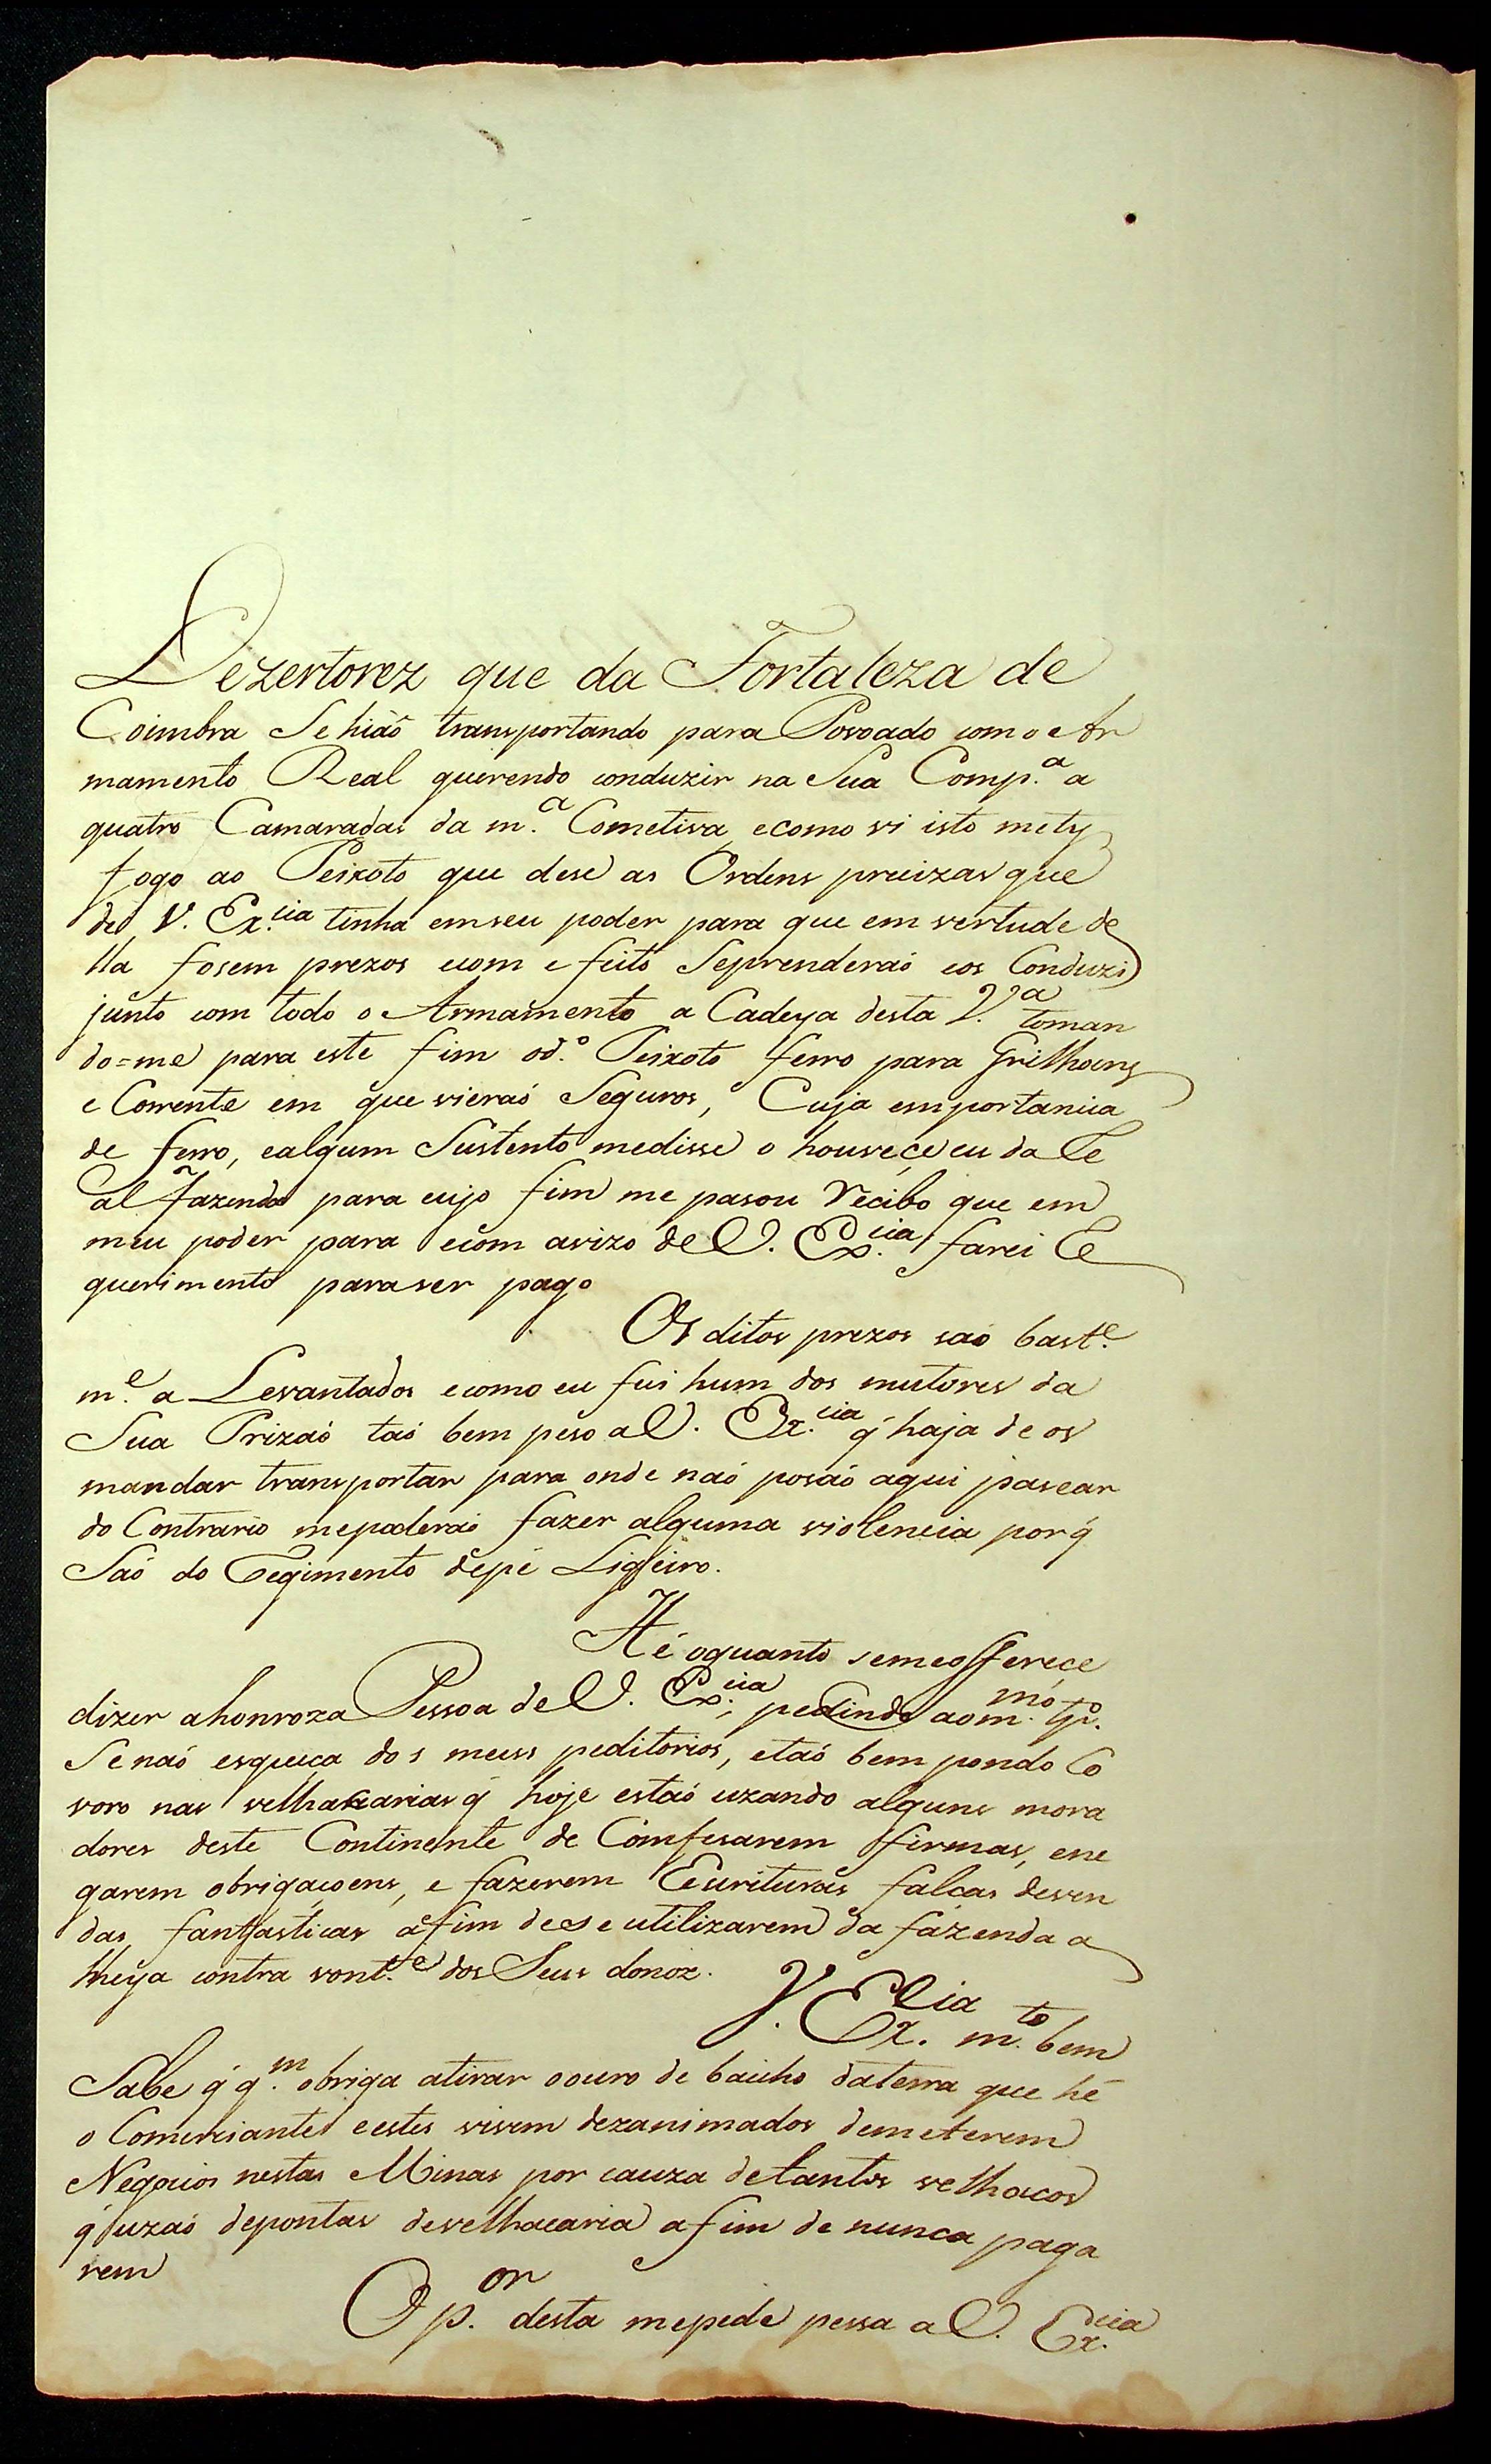 Dezertorez que da Fortaleza de
Coimbra Se hiaõ transportando para Povoado com o Ar
mamento Real querendo conduzir na Sua Comp.ª a
quatro Camaradas da m.ª Cometiva, ecomo vi isto mety
fogo ao Peixoto que dese as Ordens preizas que
de V. Ex.cia tinha emseu poder para que em vertude de
lla fosem prezos ecom efeito Seprenderaó eos Conduzi
junto com todo o Armamento a Cadeya desta V.ª toman
do=me para este fim od.º Peixoto ferro para Grilhoens
e Corrente em que vieraó Seguros, Cuja emportancia
de ferro, ealgum Sustento medisse o houveçe eu da Re
al Fazenda para cujo fim me pasou Recibo que em
meu poder para ecom avizo de V. Ex.cia farei Re
querimento paraser pago
Os ditos prezos saó bast.e
m.e a Levantados ecomo eu fui hum dos mutores da
Sua Prizaó taó bem peso a V. Ex.cia q́ haja de os
mandar transportar para onde naó posaó aqui pasear
do Contrario mepoderaó fazer alguma violencia porq́
Saó do Regimento depé Ligeiro.
Hé oquanto semeofferece
dizer ahonroza Pessoa de V. Ex.cia, pedindo aom.mo tp.o
Se naó esqueça dos meus peditorios, etaó bem pondo Co
voro nas velhacarias q́ hoje estaó uzando alguns mora
dores deste Continente de Comfesarem firmas, ene
garem obrigaçoens, e fazerem Escrituras falças deven
das fantasticas afim dese utilizarem da fazenda a
lheya contra vont.e dos Seus donoz.
V. Ex.cia m.to bem
Sabe q́ q.m obriga atirar oouro de baicho daterra que hé
o Comerciante eestes vivem dezanimados demeterem
Negocios nestas Minas por cauza detantos velhacos
q́ uzaó depontas develhacaria afim de nunca paga
rem
O p.or desta mepede pessa a V. Ex.cia